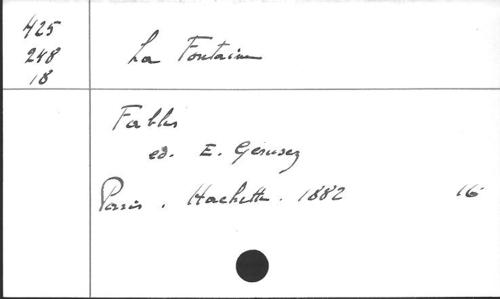 425
248
18
La Fontaine
Fables
ed. E. Gerusez
Paris. Hachette. 1882 16